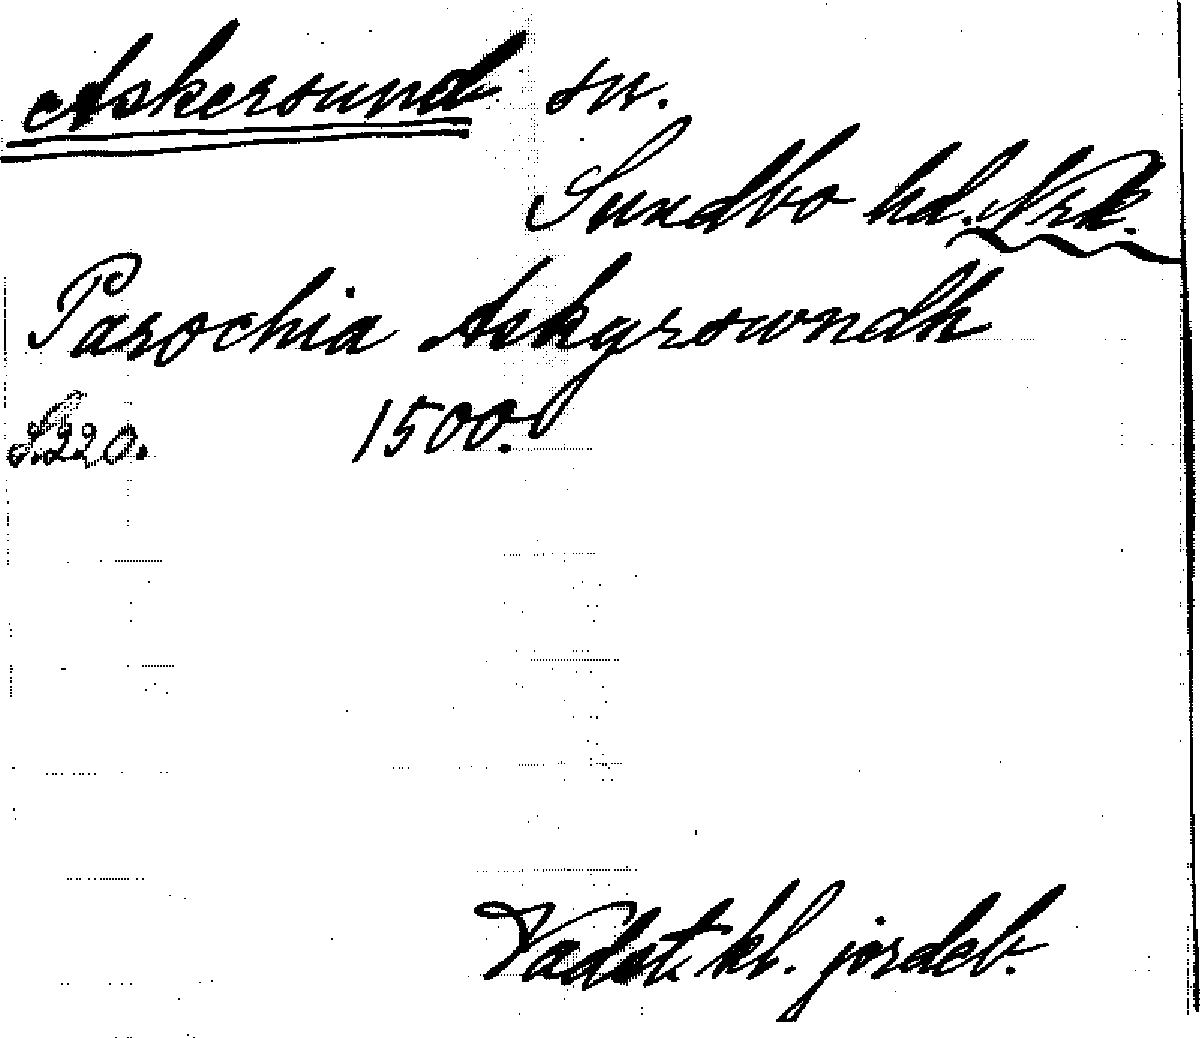 Askersund sn.
Sundbo hd. Nrk.
Parochia Askgrsowndh
S. 220. 1500.
Vadst. kl. jordeb.